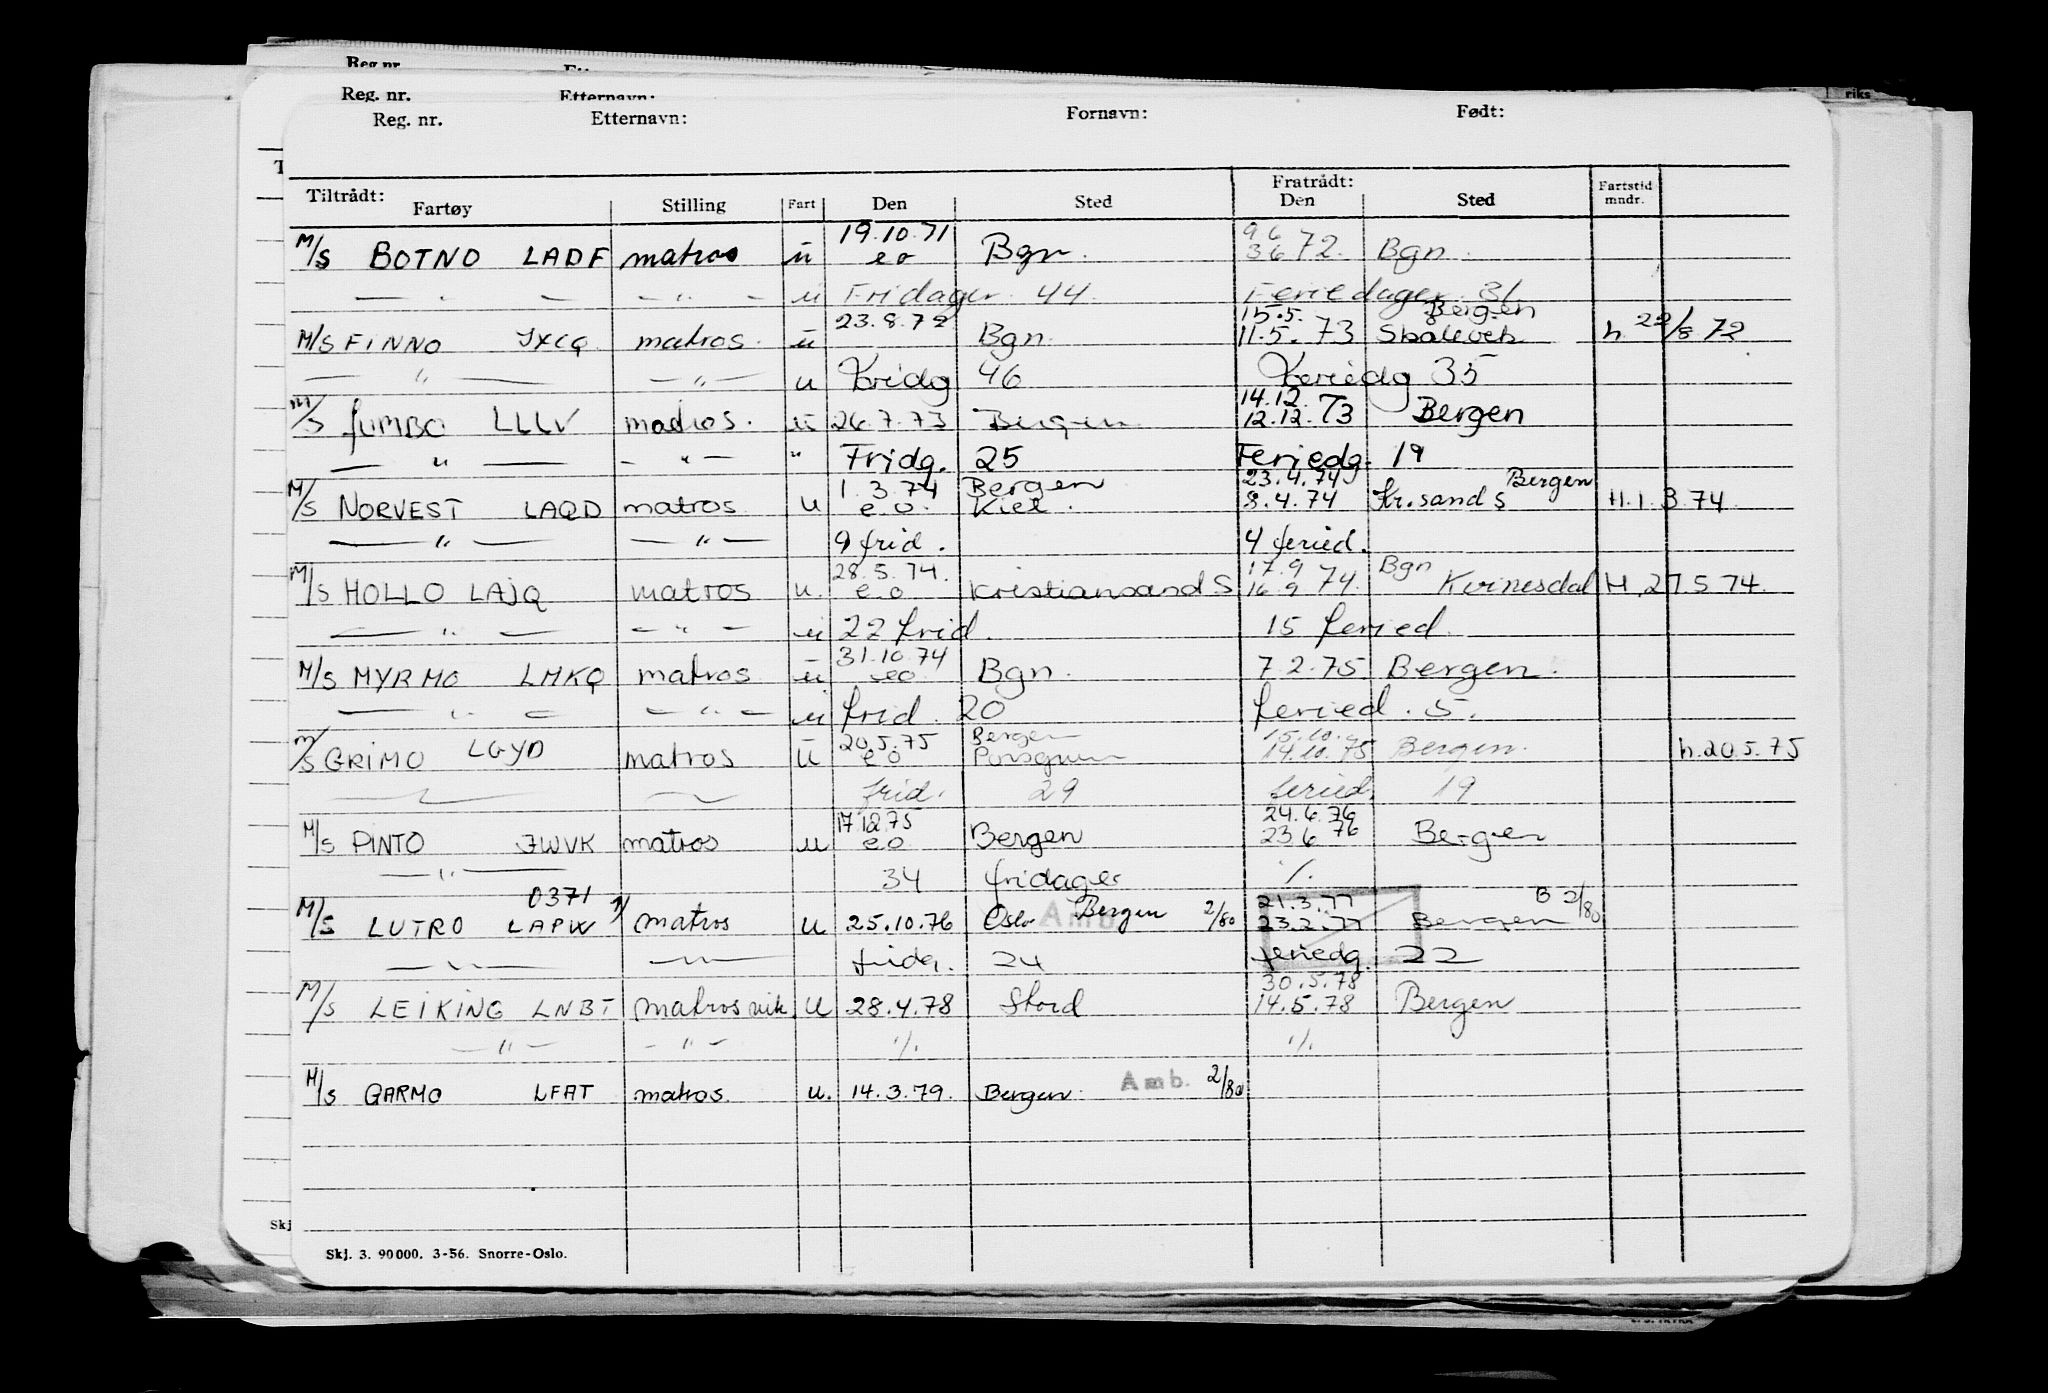 Reg. nr.
Reg. nr. Etternavn:
Reg. nr. Etternavn: Fornavn: Født:
Tiltrådt: Fratrådt:
Fartøy Stilling Fart Den Sted Den Sted Fartstid mndr.
19.10.71 9 6
M/S BOTNO LADF matros u eo Bgn. 3 6 72. Bgn.
— " — — " — u Fridager 44. Feriedager 31.
23.8.72 15.5. Bergen
M/S FINNO JXCQ matros. u Bgn. 11.5. 73 Skålevik h. 22/8 72
— " — — " — u Fridg 46 Feriedg 35
14.12.
M/S JUMBO LLLV matros. u 26.7.73 Bergen 12.12.73 Bergen
— " — — " — " Fridg. 25 Feriedg. 19
1.3.74 Bergen 23.4.74 Bergen
M/S NORVEST LAQD matros u e.o. Kiel. 8.4.74 Kr.sand S H.1.3.74.
— " — — " — 9 frid. 4 feried.
28.5.74. 17.9 Bgn
M/S HOLLO LAJQ matros u. e.o Kristiansand S 16.9 74. Kvinesdal H.27.5 74.
— " — — " — u 22 frid. 15 feried.
31.10.74
M/S MYRMO LMKQ matros u eo Bgn. 7.2.75 Bergen.
— " — — " — u frid. 20 feried. 5.
20.5.75 Bergen 15.10.
M/S GRIMO LGYD matros u eo Porsgrunn 14.10.75 Bergen. h.20.5.75
frid. 29 feried. 19
17 12 75 24.6.76
M/S PINTO JWVK matros u e.o. Bergen 23.6 76 Bergen
— " — 34 fridager ./.
0371 21.3.77 B 2/80
M/S LUTRO LAPW 1/ matros u 25.10.76 Oslo Amb. Bergen 2/80 23.2.77 Bergen
— " — — " — fridg. 24 feriedg. 22
30.5.78
M/S LEIKING LNBT matros vik. u 28.4.78 Stord 14.5.78 Bergen
— " — — " — ./. ./.
M/S GARMO LFAT matros. u. 14.3.79. Bergen. Amb. 2/80
Skj
Skj. 3. 90000. 3-56. Snorre-Oslo.